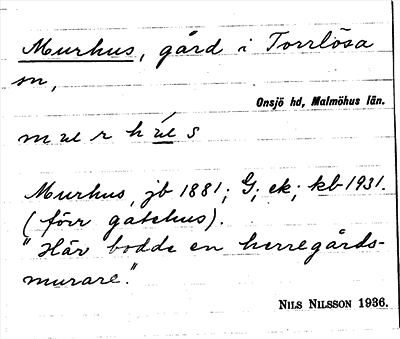 Murhus, gård i Torrlösa
sn,
Onsjö hd, Malmöhus län.
Murhus, jb 1881; G; ek; kb 1931.
(förr gatehus).
"Här bodde en herregårds-
murare."
NILS NILSSON 1936.